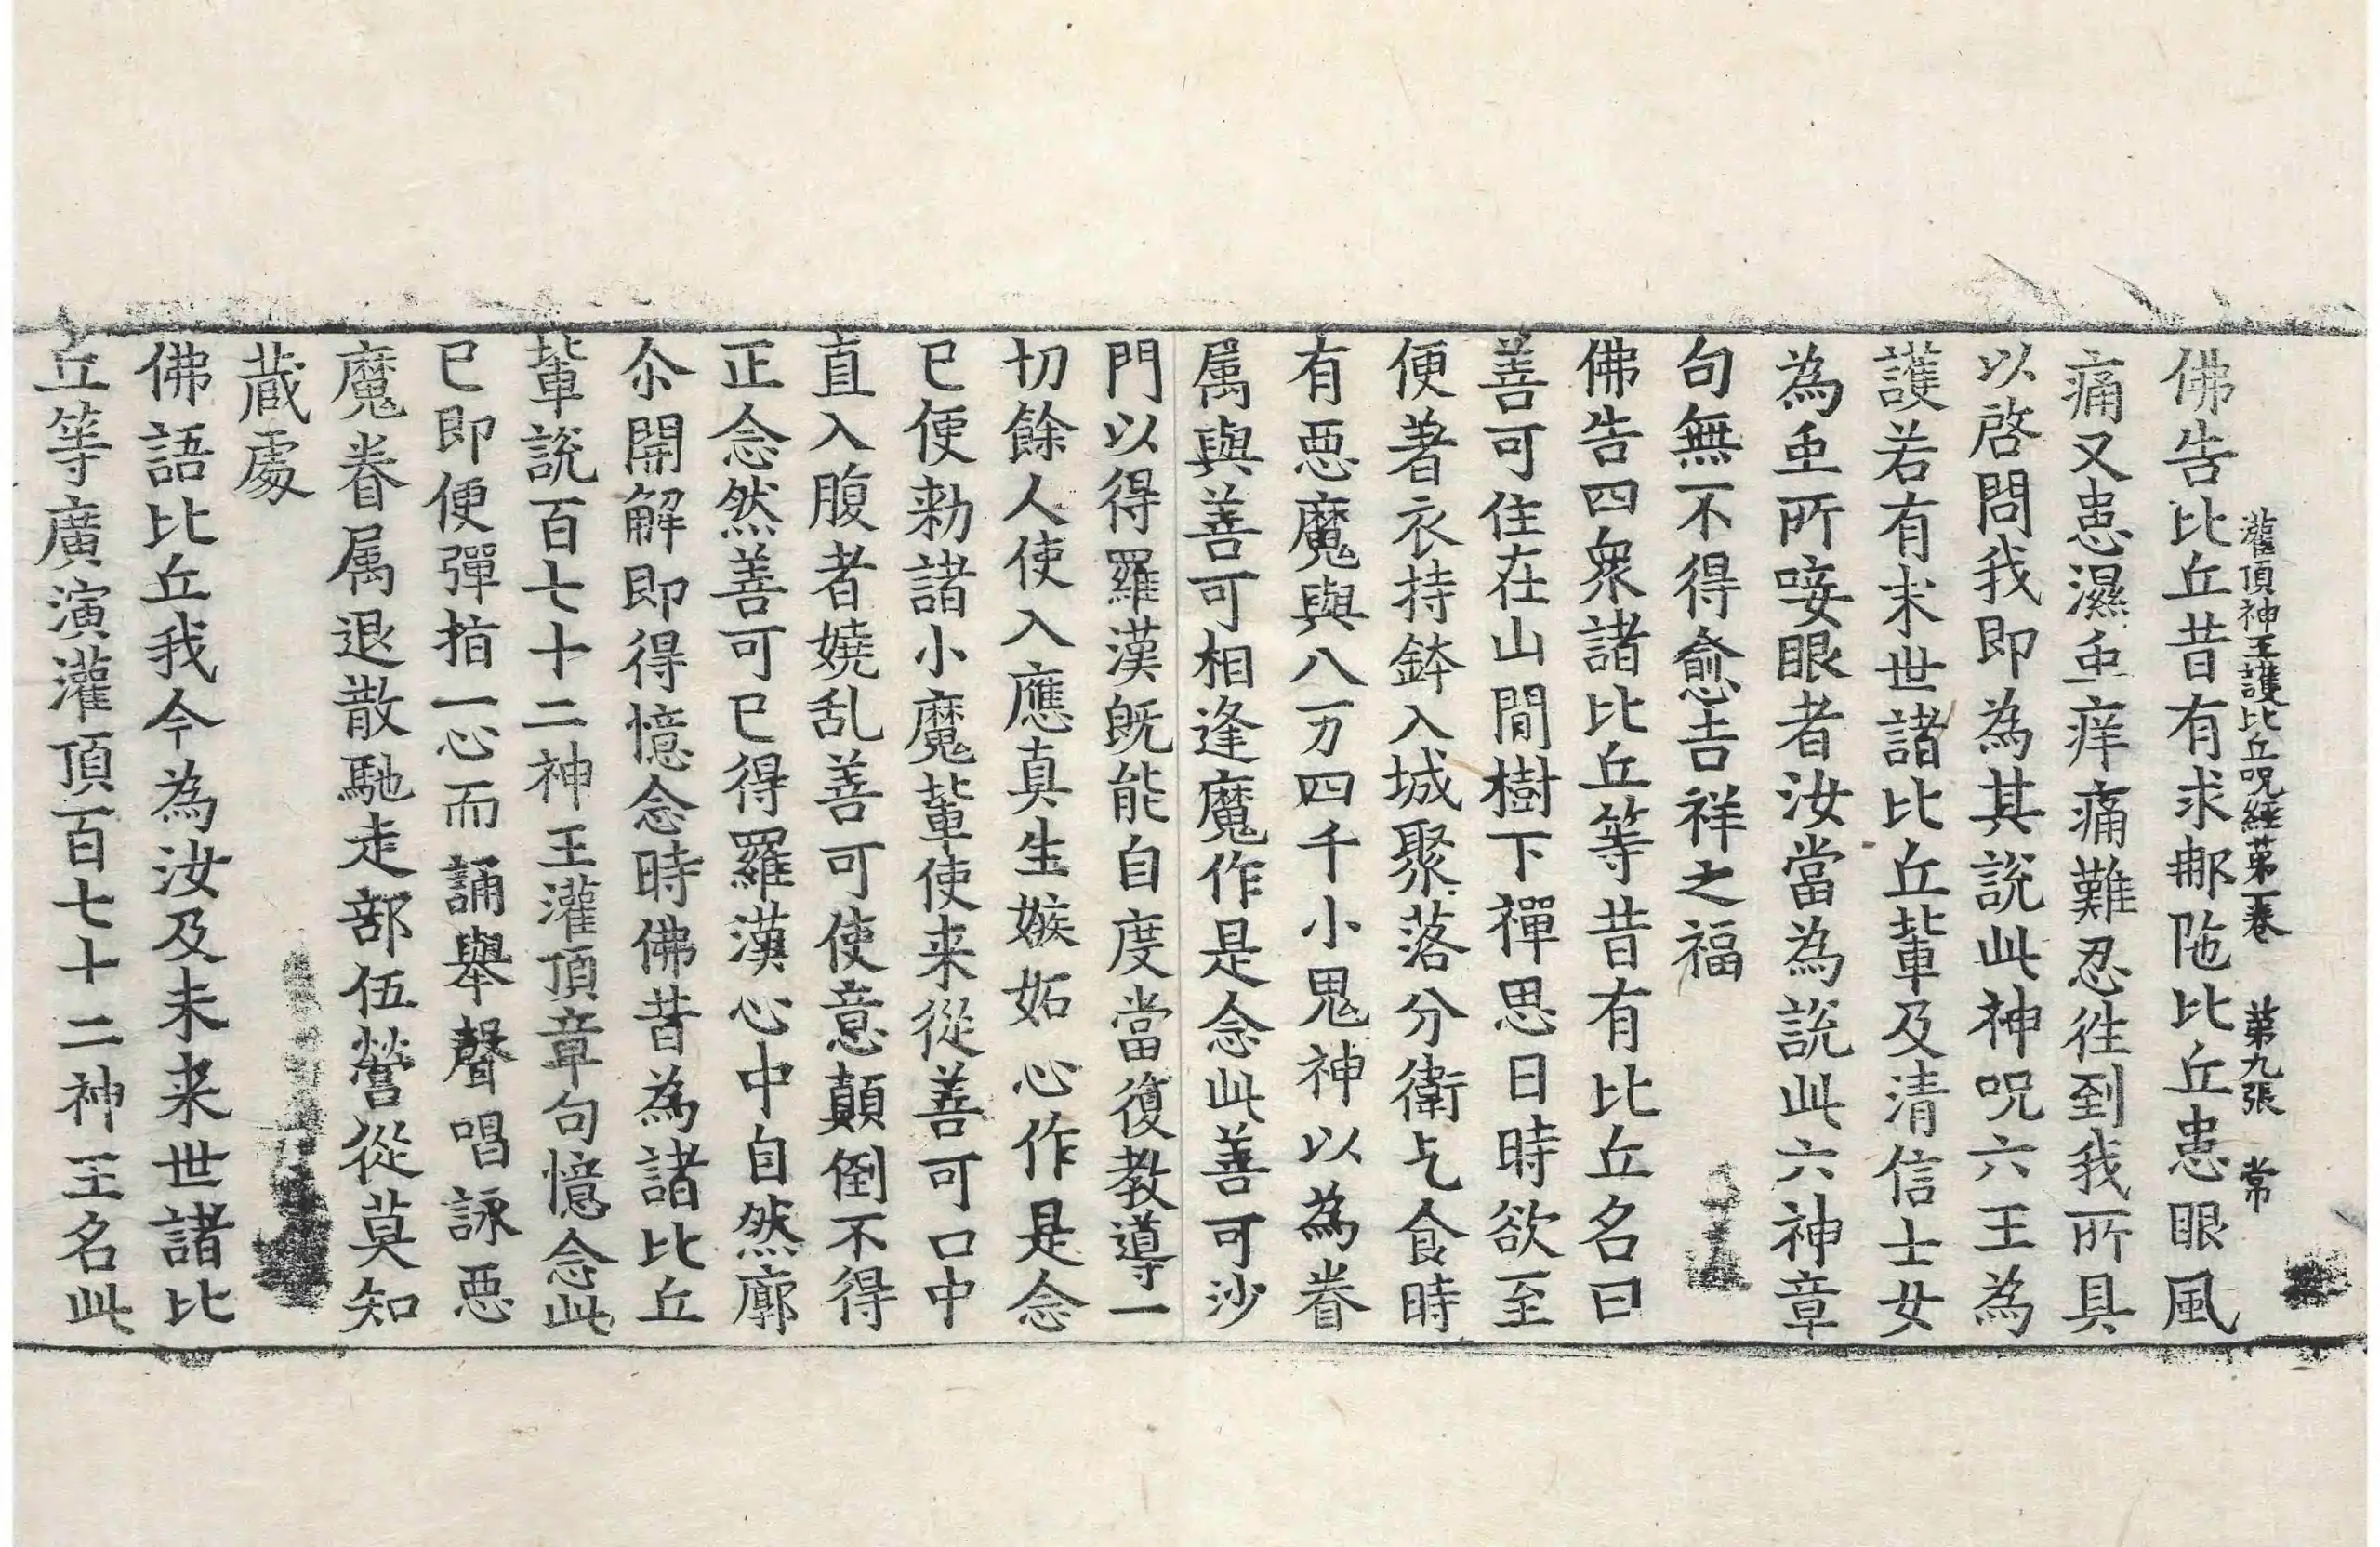 灌頂神王護比丘呪經第一卷 第九張 常
佛告比丘昔有求䣧陁比丘患眼風
痛又患濕䖝痒痛難忍徃到我所具
以啓問我即為其說此神呪六王為
護若有末世諸比丘軰及清信士女
為䖝所唼眼者汝當為說此六神章
句無不得愈吉祥之福
佛告四衆諸比丘等昔有比丘名曰
善可住在山閒樹下禪思日時欲至
便著衣持鉢入城聚落分衛乞食時
有惡魔與八万四千小鬼神以為眷
属與善可相逢魔作是念此善可沙
門以得羅漢旣能自度當復教導一
切餘人使入應真生嫉妬心作是念
已便勑諸小魔軰使来從善可口中
直入腹者嬈乱善可使意顛倒不得
正念然善可已得羅漢心中自然廓
尒開解即得憶念時佛昔為諸比丘
軰說百七十二神王灌頂章句憶念此
已即便彈指一心而誦舉聲唱詠惡
魔眷属退散馳走部伍營從莫知
藏處
佛語比丘我今為汝及未来世諸比
丘等廣演灌頂百七十二神王名此